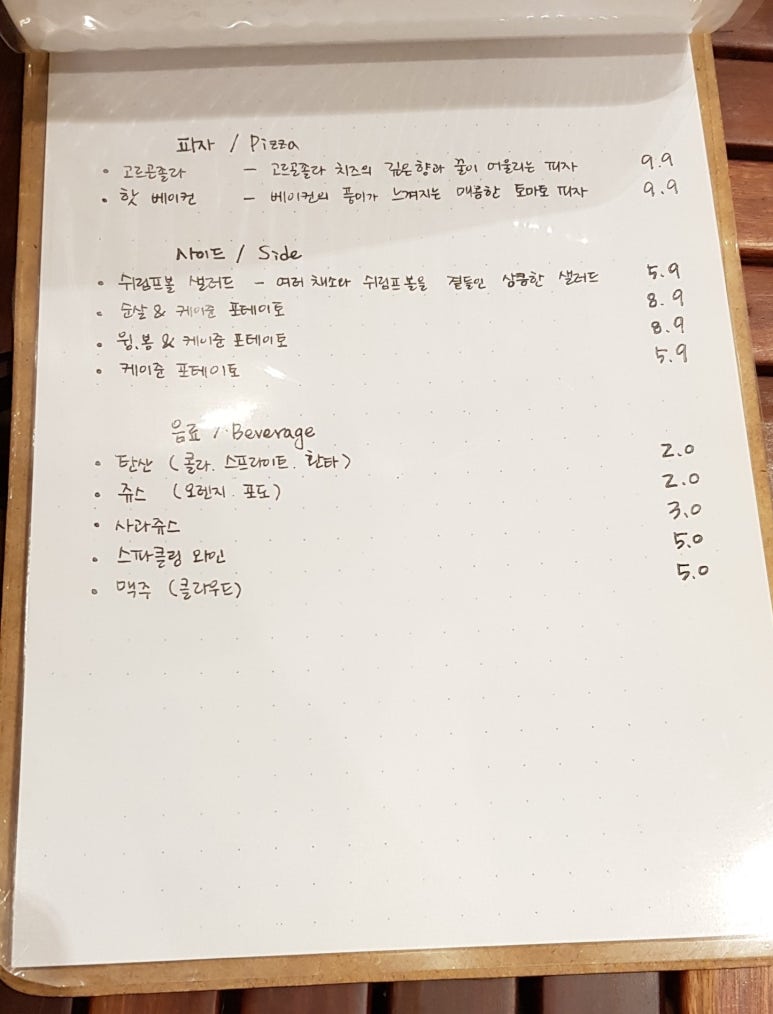 피자 / Pizza
• 고르곤졸라 – 고르곤졸라 치즈의 깊은향과 꿀이 어울리는 피자 9.9
• 핫 베이컨 – 베이컨의 풍미가 느껴지는 매콤한 토마토 피자 9.9
사이드 / Side
• 쉬림프볼 샐러드 – 여러 채소와 쉬림프볼을 곁들인 상큼한 샐러드 5.9
• 순살 & 케이준 포테이토 8.9
• 윙.봉 & 케이준 포테이토 8.9
• 케이준 포테이토 5.9
음료 / Beverage
• 탄산 (콜라. 스프라이트. 환타) 2.0
• 쥬스 (오렌지. 포도) 2.0
• 사과쥬스 3.0
• 스파클링 와인 5.0
• 맥주 (클라우드) 5.0